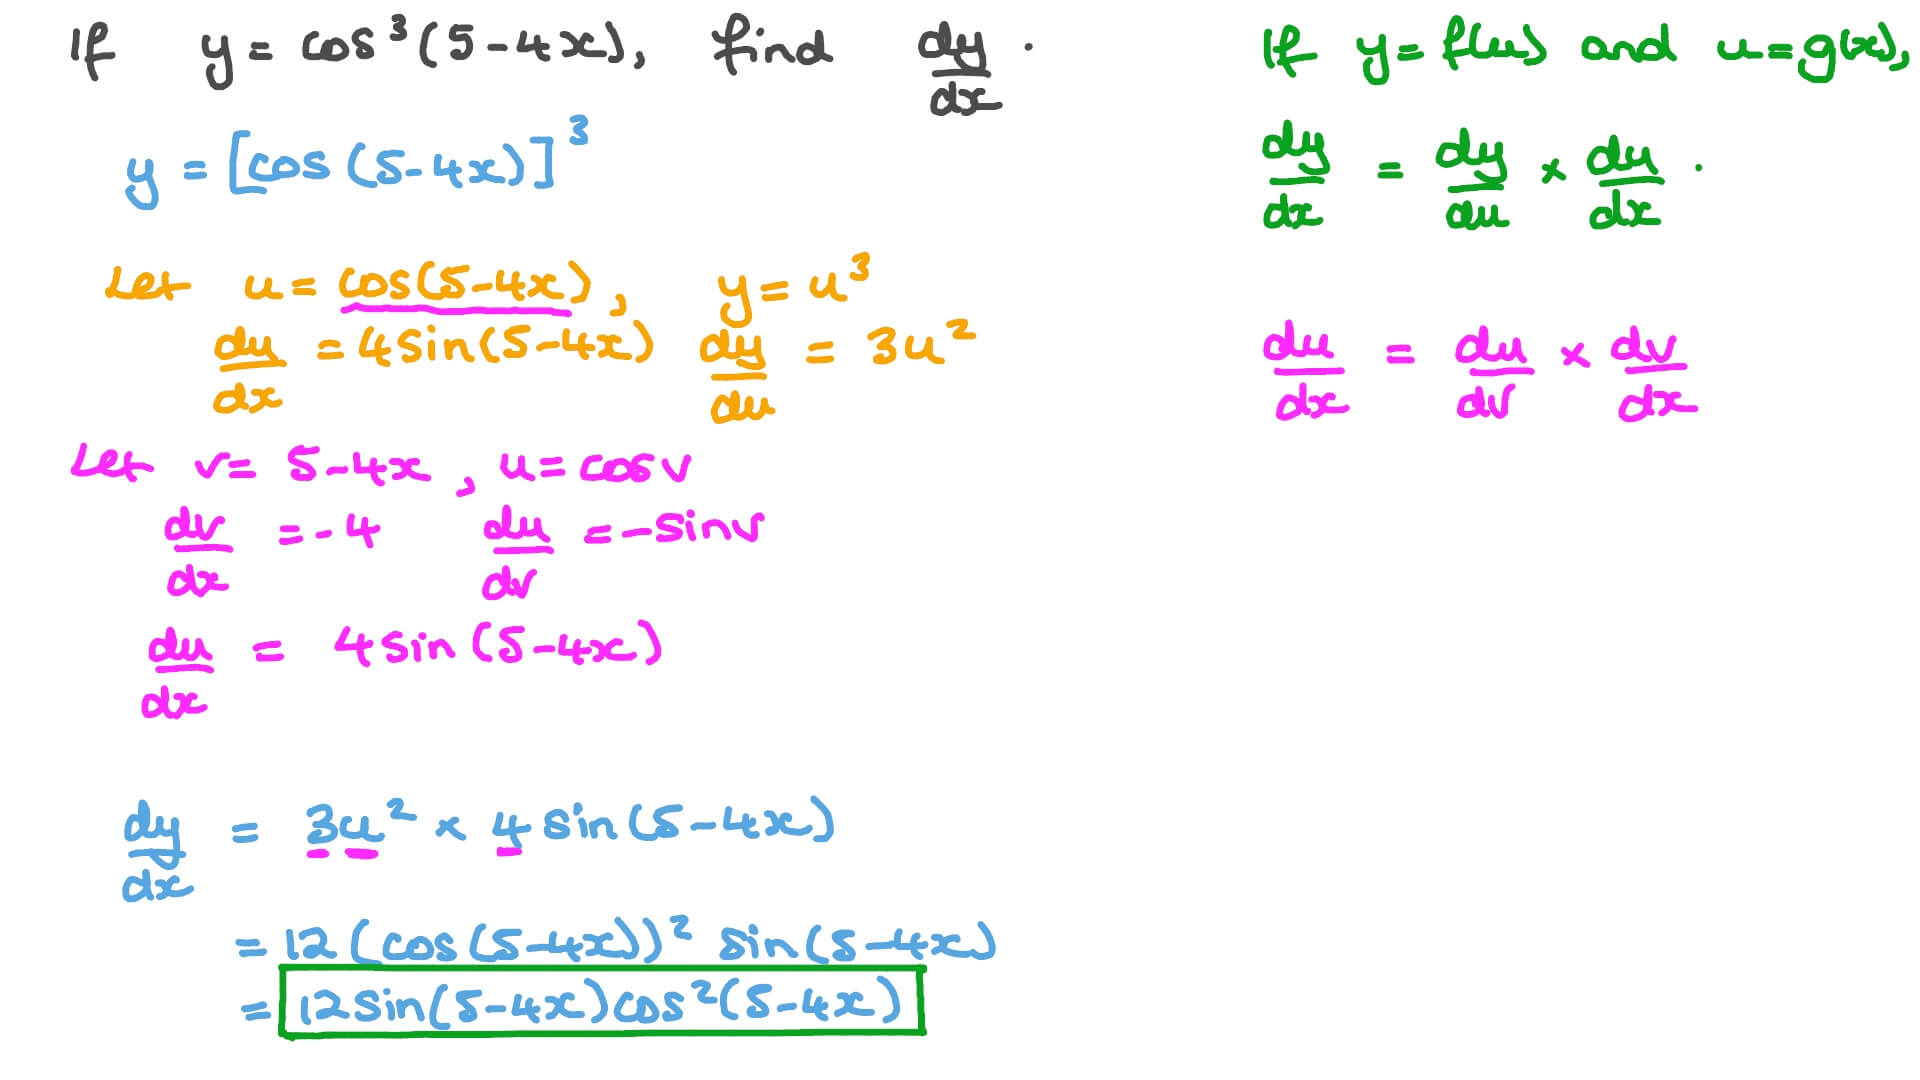 If y = cos³(5-4x), find dy/dx.
y = [cos(5-4x)]³
Let u = cos(5-4x), y = u³
du/dx = 4sin(5-4x) dy/du = 3u²
Let v = 5-4x, u = cos v
dv/dx = -4 du/dv = -sin v
du/dx = 4sin(5-4x)
dy/dx = 3u² × 4 sin(5-4x)
= 12(cos(5-4x))² sin(5-4x)
= 12sin(5-4x)cos²(5-4x)
If y = f(u) and u = g(x),
dy/dx = dy/du × du/dx.
du/dx = du/dv × dv/dx